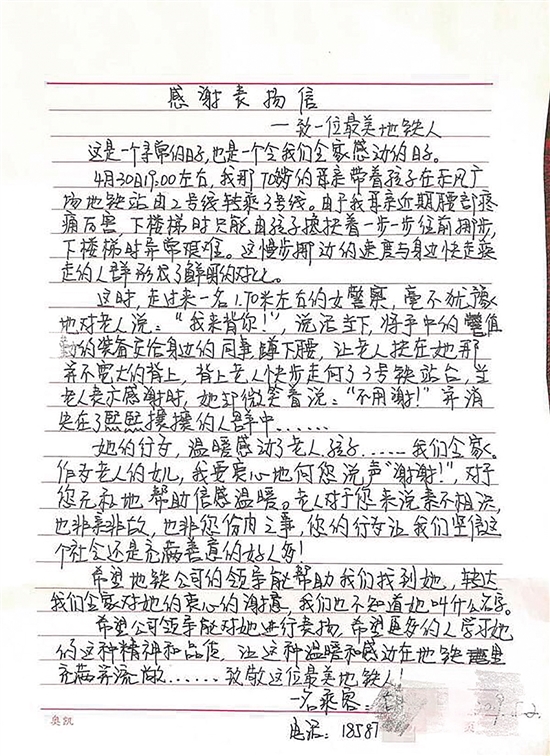 感谢表扬信
—致一位最美地铁人
这是一个寻常的日子,也是一个令我们全家感动的日子。
4月30日19:00左右,我那70岁的母亲带着孩子在东风广
场地铁站由2号线转乘3号线。由于我母亲近期腰部疼
痛厉害,下楼梯时只能由孩子搀扶着一步一步往前挪步,
下楼梯时异常艰难。这慢步挪边的速度与身边快走乘
走的人群形成了鲜明的对比。
这时,走过来一名1.70米左右的女警察,毫不犹豫
地对老人说:“我来背你!”,说话当下,将手中的 值
勤的装备交给身边的同事蹲下腰,让老人扶在她那
并不宽大的背上,背上老人快步走向了3号铁站台,当
老人表示感谢时,她却微笑着说:“不用谢!”并消
失在了熙熙攘攘的人群中......
她的行为,温暖感动了老人.孩子......我们全家。
作为老人的女儿,我要衷心地向您说声“谢谢!”,对于
您无私地帮助倍感温暖。老人对于您来说素不相识,
也非亲非故,也非您份内之事,您的行为让我们坚信这
个社会还是充满善意的好人多!
希望地铁公司的领导能帮助我们找到她,转达
我们全家对她的衷心的谢意,我们也不知道她叫什么名字。
希望公司领导能对她进行表扬,希望更多的人学习她
的这种精神和品质,让这种温暖和感动在地铁里
充满并流淌......致敬这位最美地铁人!
一名乘客:
电话:18587
奥凯